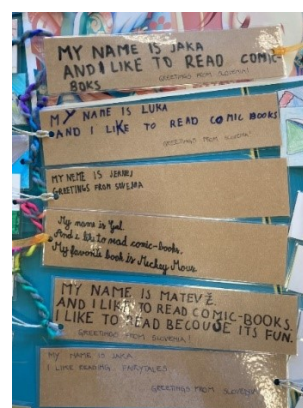 MY NAME IS JAKA
AND I LIKE TO READ COMIC
BOKS
GREETINGS FROM SLOVENIA!
MY NAME IS LUKA
AND I LIKE TO READ COMIC BOOKS
GREETINGS FROM SLOVENIA
MY NEME IS
GREETINGS FROM
My name is Gal.
And I like to read comic-books.
My favorite book is Meckey Mous.
MY NAME IS MATEVŽ.
AND I LIKE TO READ COMIC-BOOKS.
I LIKE TO READ BECOUSE ITS FUN.
GREETINGS FROM SLOVENIA!
MY NAME IS JAKA
I LIKE READING FAIRYTALES
GREETINGS FROM SLOVENIA